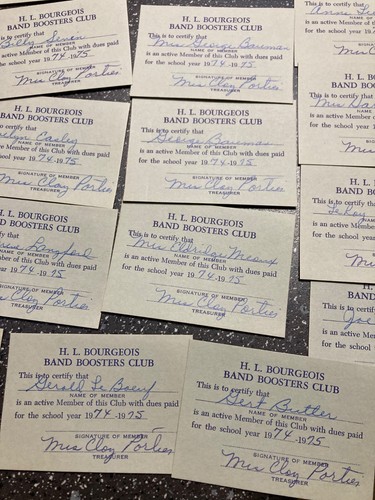 This is to certify that
Billy
NAME OF MEMBER
is an active Member of this Club with dues paid
for the school year 1974-1975
SIGNATURE OF MEMBER
Mrs Clay Porties
TREASURER
H. L. BOURGEOIS
BAND BOOSTERS CLUB
This is to certify that
Mrs George Bauman
NAME OF MEMBER
is an active Member of this Club with dues paid
for the school year 1974-1975
SIGNATURE OF MEMBER
Mrs Clay Porties
TREASURER
This is to
is an active
for the school
SIG
H. L. BOURGEOIS
BAND BOOSTERS CLUB
This is to certify that
Casley
NAME OF MEMBER
is an active Member of this Club with dues paid
for the school year 1974-1975
SIGNATURE OF MEMBER
Mrs Clay Porties
TREASURER
H. L. BOURGEOIS
BAND BOOSTERS CLUB
This is to certify that
George Bauman
NAME OF MEMBER
is an active Member of this Club with dues paid
for the school year 1974-1975
SIGNATURE OF MEMBER
Mrs Clay Porties
TREASURER
H. L. BO
BAND BOOS
This is to certify
Mrs
NAME
is an active Memb
for the school year
SIGNATUR
Mrs C
H. L. BOURGEOIS
BOOSTERS CLUB
certify that
Langford
NAME OF MEMBER
Member of this Club with dues paid
year 1974-1975
SIGNATURE OF MEMBER
Mrs Clay Porties
TREASURER
H. L. BOURGEOIS
BAND BOOSTERS CLUB
This is to certify that
Mrs Aldridge Meaux
NAME OF MEMBER
is an active Member of this Club with dues paid
for the school year 1974-1975
SIGNATURE OF MEMBER
Mrs Clay Porties
TREASURER
H. L.
BAND BO
This is to certif
LeRoy
is an active Me
for the school ye
SIGNA
Mrs
H. L.
BAND B
This is to cert
Joe
is an active M
for the school
H. L. BOURGEOIS
BAND BOOSTERS CLUB
This is to certify that
Gerald Le Boeuf
NAME OF MEMBER
is an active Member of this Club with dues paid
for the school year 1974-1975
SIGNATURE OF MEMBER
Mrs Clay Porties
TREASURER
H. L. BOURGEOIS
BAND BOOSTERS CLUB
This is to certify that
Gert Butler
NAME OF MEMBER
is an active Member of this Club with dues paid
for the school year 1974-1975
SIGNATURE OF MEMBER
Mrs Clay Porties
TREASURER